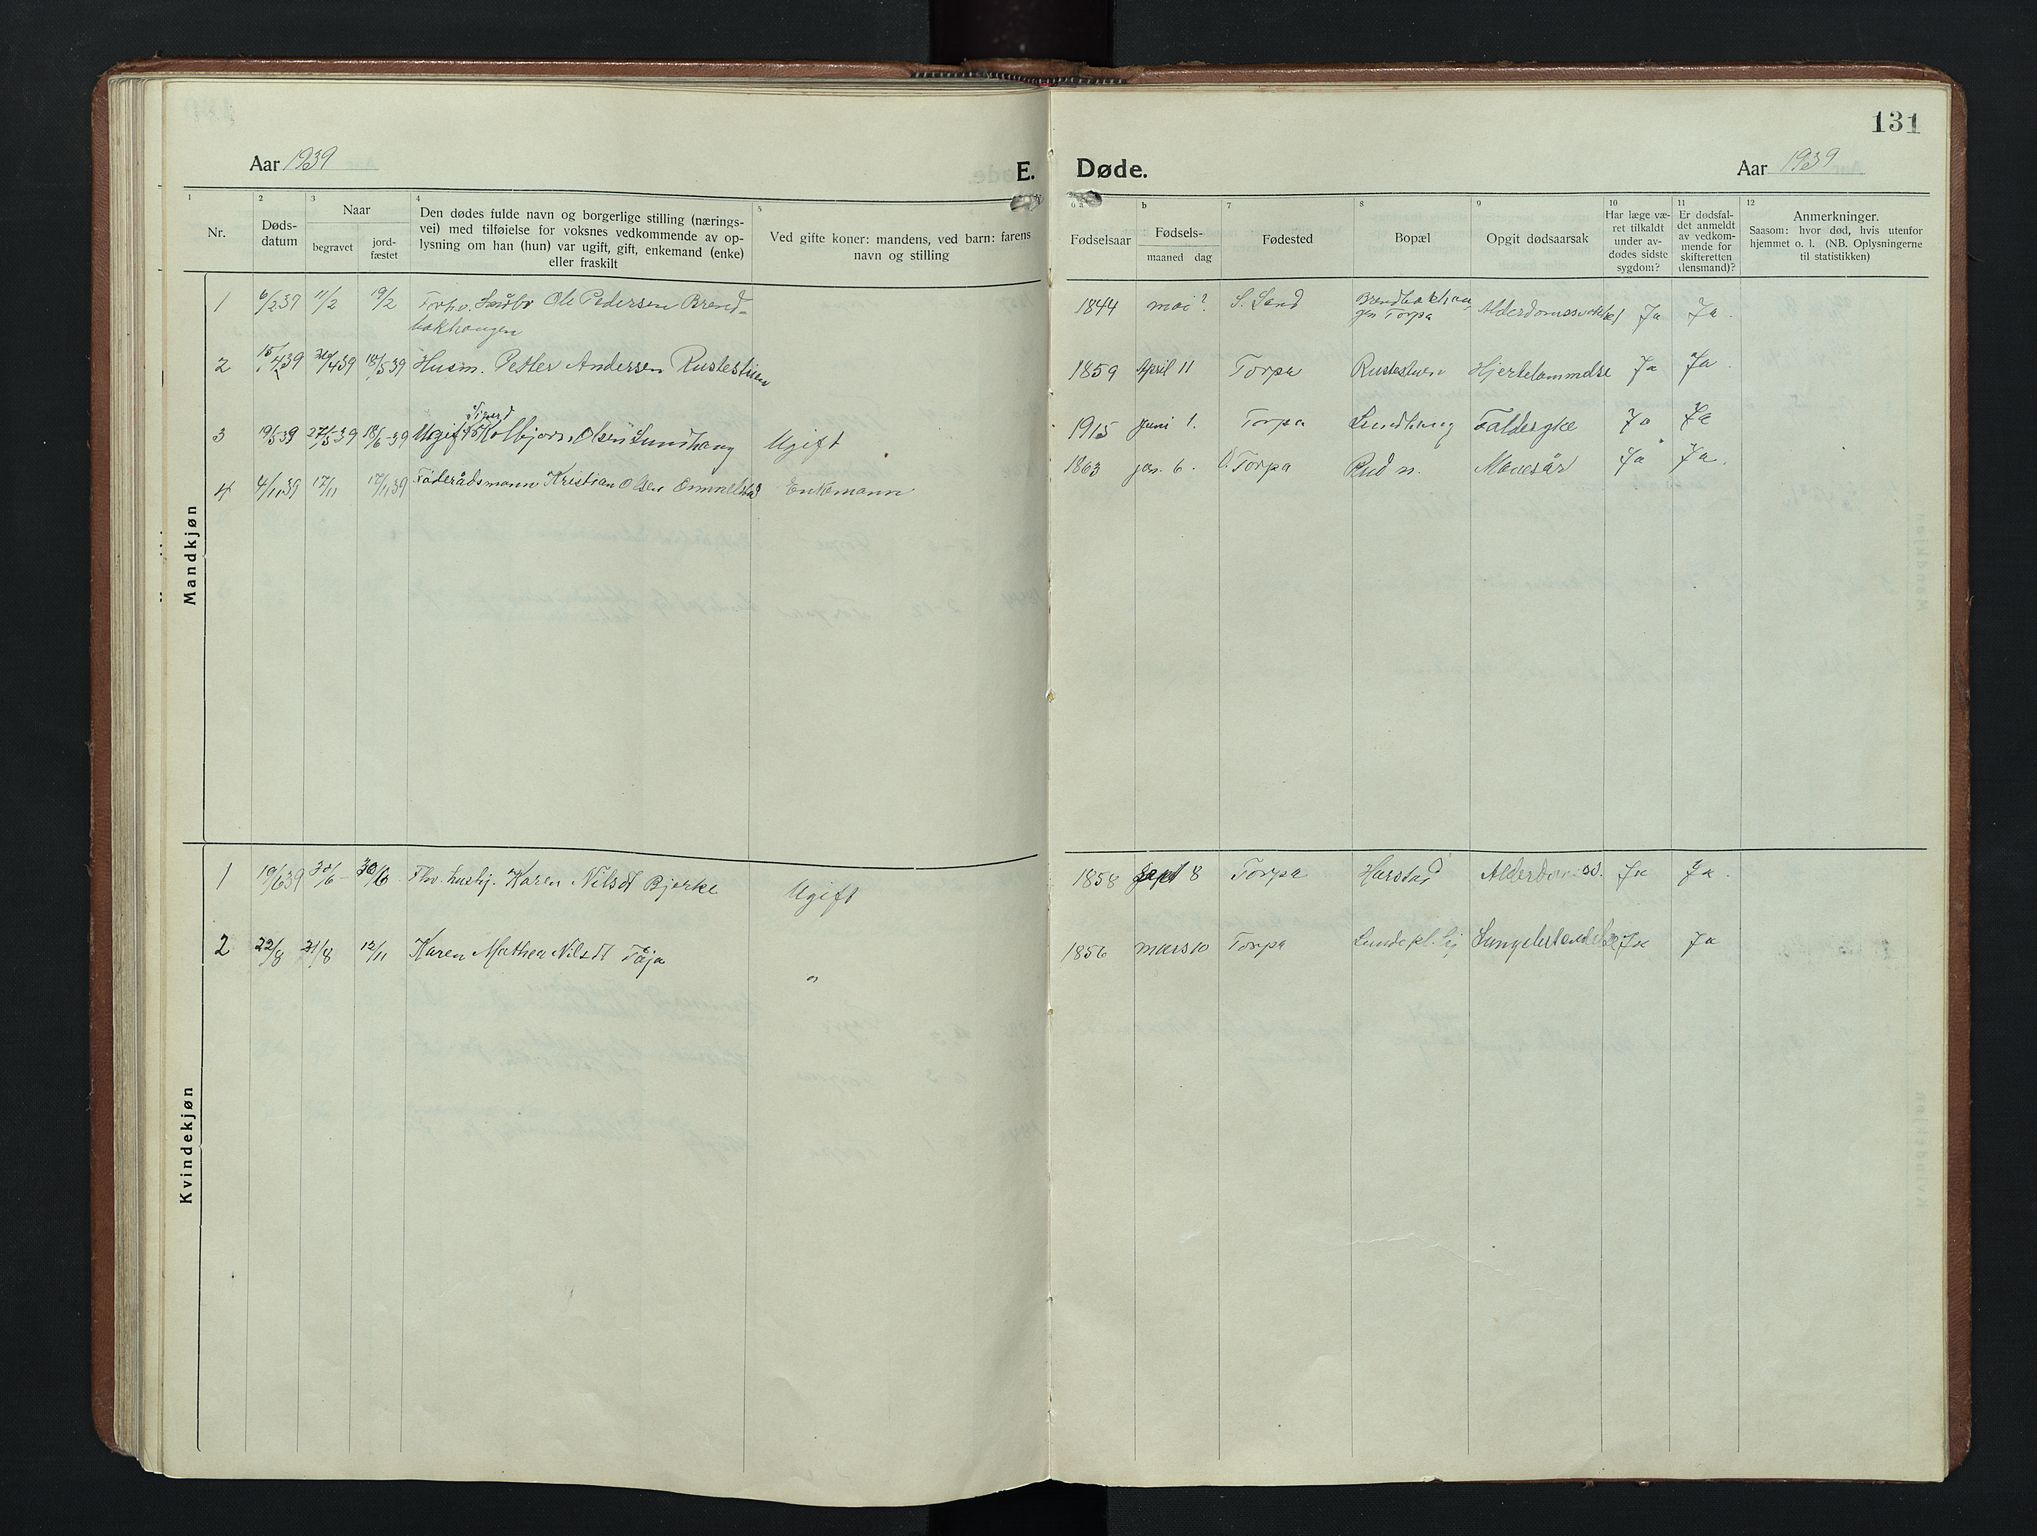 131
Aar 1939
E. Døde.
Aar 1939
1 2 3 4 5 6 a b 7 8 9 10 11 12
Nr.
Døds-
datum
Naar
begravet
jord-
fæstet
Den dødes fulde navn og borgerlige stilling (nærings-
vei) med tilføielse for voksnes vedkommende av op-
lysning om han (hun) var ugift, gift, enkemand (enke)
eller fraskilt
Ved gifte koner: mandens, ved barn: farens
navn og stilling
Fødselsaar
Fødsels-
maaned dag
Fødested
Bopæl
Opgit dødsaarsak
Har læge væ-
ret tilkaldt
under av-
dødes sidste
sygdom?
Er dødsfal-
det anmeldt
av vedkom-
mende for
skifteretten
(lensmand)?
Anmerkninger.
Saasom: hvor død, hvis utenfor
hjemmet o. l. (NB. Oplysningerne
til statistikken)
Mandkjøn
1 6/2 39 11/2 19/2 Ole Pedersen Brend-
bakhaugen
1844 mai ? S. Land Brendbakhau-
gen Torpa
Ja Ja.
2 15/4 39 20/4 39 18/5 39 Husm. Petter Andersen Rustestuen
1859 April 11 Torpa Rustestuen Hjertelammelse Ja Ja.
Sigurd
3 19/5 39 27/5 39 18/6 39 Ugift Kolbjørn Olsen Lundhaug Ugift
1915 juni 1. Torpa Lundhaug Ja Ja
4 4/11 39 17/11 17/11 39 Føderådsmann Kristian Olsen Enkemann
1863 jan. 6. Torpa Rud n. Mavesår Ja Ja.
Kvindekjøn
1 19/6 39 30/6 30/6 Fhv. hush. Karen Nilsdt Bjerke Ugift
1858 sept 8 Torpa Harstad Ja Ja.
2 22/8 31/8 12/11 Karen Mathea Nilsdt Tøja "
1856 mars 10 Torpa Lungebetendelse Ja Ja